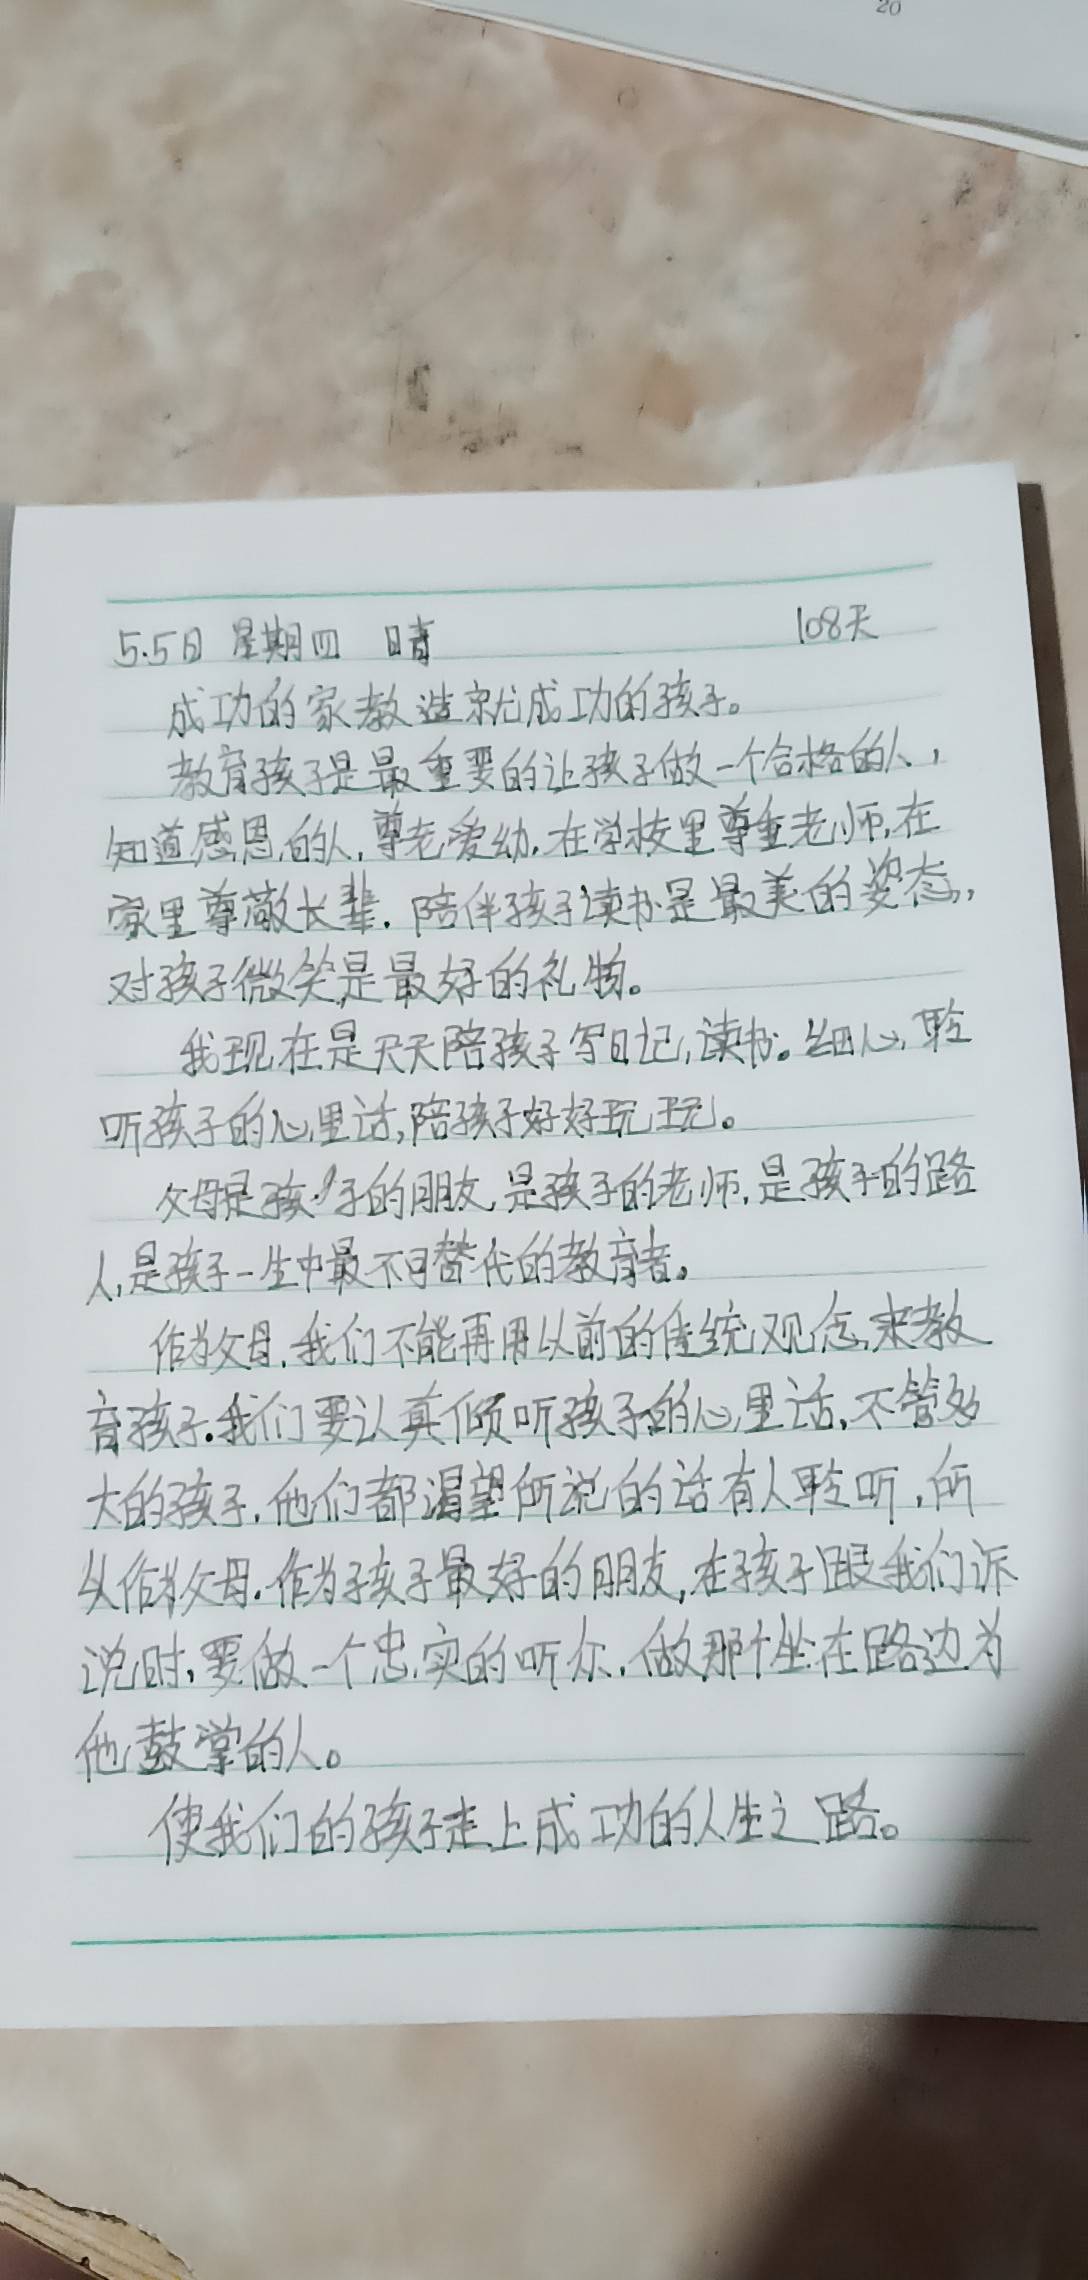 20
5.5日 星期四 晴 108天
成功的家教造就成功的孩子。
教育孩子是最重要的让孩子做一个合格的人,
知道感恩的人,尊老爱幼,在学校里尊重老师,在
家里尊敬长辈.陪伴孩子读书是最美的姿态,
对孩子微笑是最好的礼物。
我现在是天天陪孩子写日记,读书。细心,聆
听孩子的心里话,陪孩子好好玩玩。
父母是孩子的朋友,是孩子的老师,是孩子的路
人,是孩子一生中最不可替代的教育者。
作为父母,我们不能再用以前的传统观念,来教
育孩子.我们要认真倾听孩子的心里话,不管多
大的孩子,他们都渴望所说的话有人聆听,所
以作为父母.作为孩子最好的朋友,在孩子跟我们诉
说时,要做一个忠实的听众,做那个坐在路边为
他鼓掌的人。
使我们的孩子走上成功的人生之路。